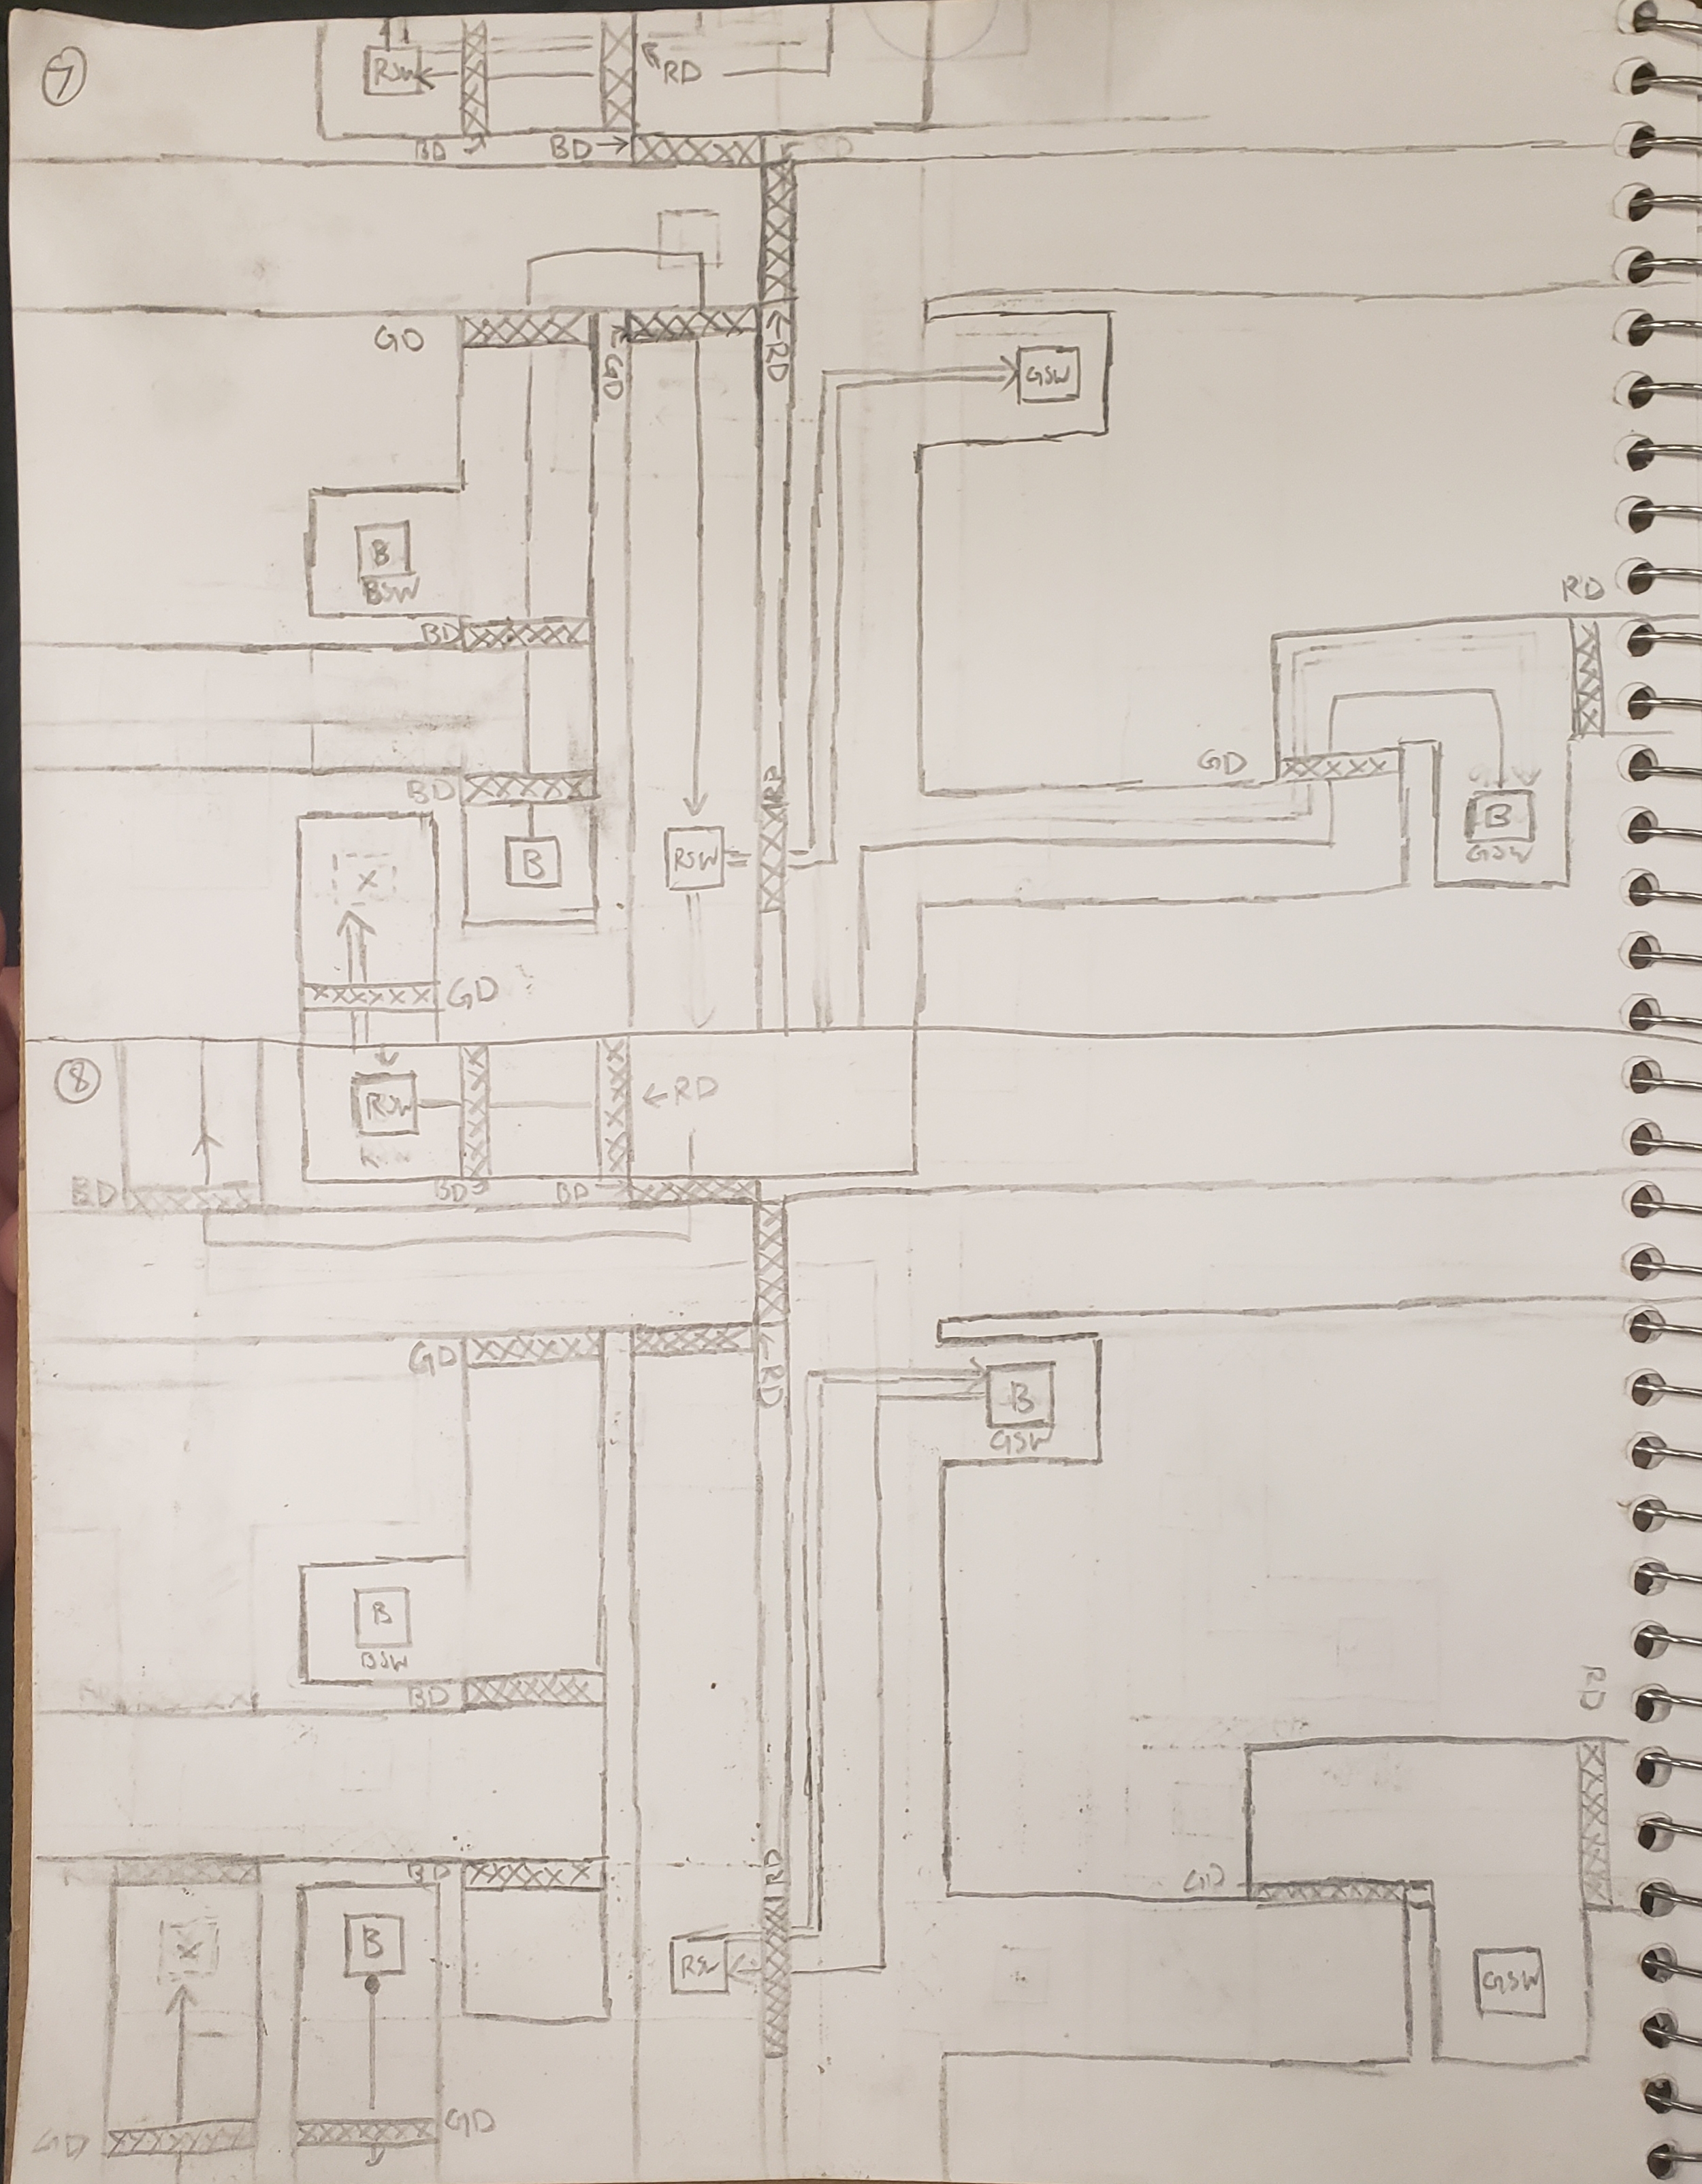 7
RSW
RD
BD
BD
RD
GD
GD
RD
GSW
B
BSW
RD
BD
GD
RD
BD
B
RSW
B
GSW
X
GD
8
RSW
RD
BD
BD
BD
GD
RD
B
GSW
B
BSW
BD
RD
BD
RD
GD
X
B
RSW
GSW
GD
GD